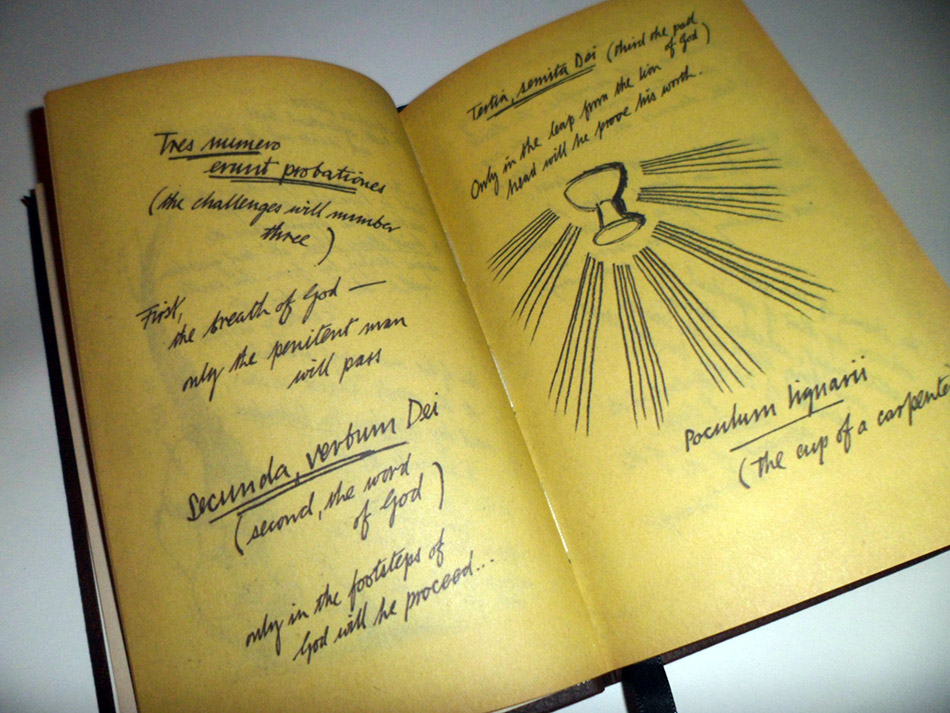 Tres numero
erunt probationes
(the challenges will number
three)
First,
the breath of God —
only the penitent man
will pass
Secunda, verbum Dei
(second, the word
of God)
only in the footsteps of
God will he proceed...
Tertia, semita Dei (third the pad
of God)
Only in the leap from the lion
head will he prove his worth.
Poculum lignarii
(The cup of a carpente